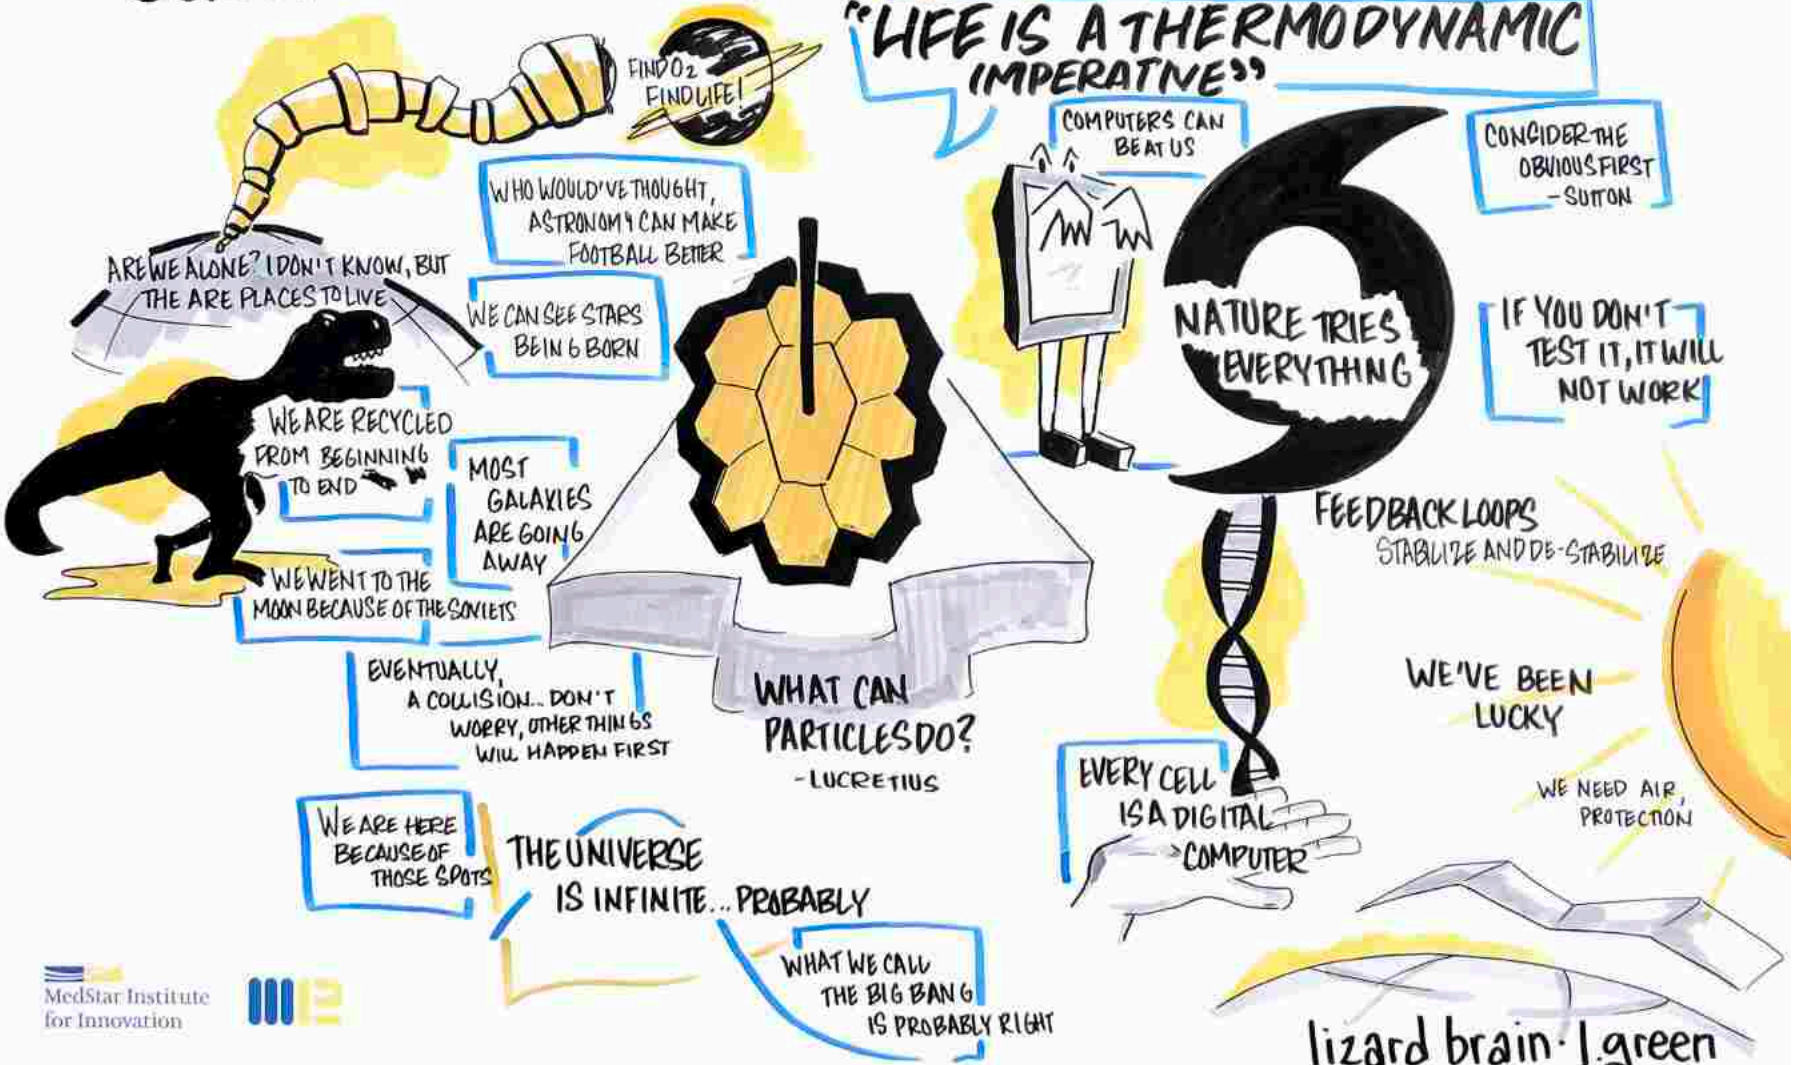 "LIFE IS A THERMODYNAMIC
IMPERATIVE"
FIND O2
FIND LIFE!
COMPUTERS CAN
BEAT US
CONSIDER THE
OBVIOUS FIRST
-SUTTON
WHO WOULD'VE THOUGHT,
ASTRONOMY CAN MAKE
FOOTBALL BETTER
ARE WE ALONE? I DON'T KNOW, BUT
THE ARE PLACES TO LIVE
WE CAN SEE STARS
BEING BORN
NATURE TRIES
EVERYTHING
IF YOU DON'T
TEST IT, IT WILL
NOT WORK
WE ARE RECYCLED
FROM BEGINNING
TO END
MOST
GALAXIES
ARE GOING
AWAY
FEEDBACK LOOPS
STABILIZE AND DE-STABILIZE
WE WENT TO THE
MOON BECAUSE OF THE SOVIETS
EVENTUALLY,
A COLLISION... DON'T
WORRY, OTHER THINGS
WILL HAPPEN FIRST
WHAT CAN
PARTICLES DO?
-LUCRETIUS
WE'VE BEEN
LUCKY
WE NEED AIR,
PROTECTION
EVERY CELL
IS A DIGITAL
COMPUTER
WE ARE HERE
BECAUSE OF
THOSE SPOTS
THE UNIVERSE
IS INFINITE... PROBABLY
WHAT WE CALL
THE BIG BANG
IS PROBABLY RIGHT
MedStar Institute
for Innovation
lizard brain · l.green